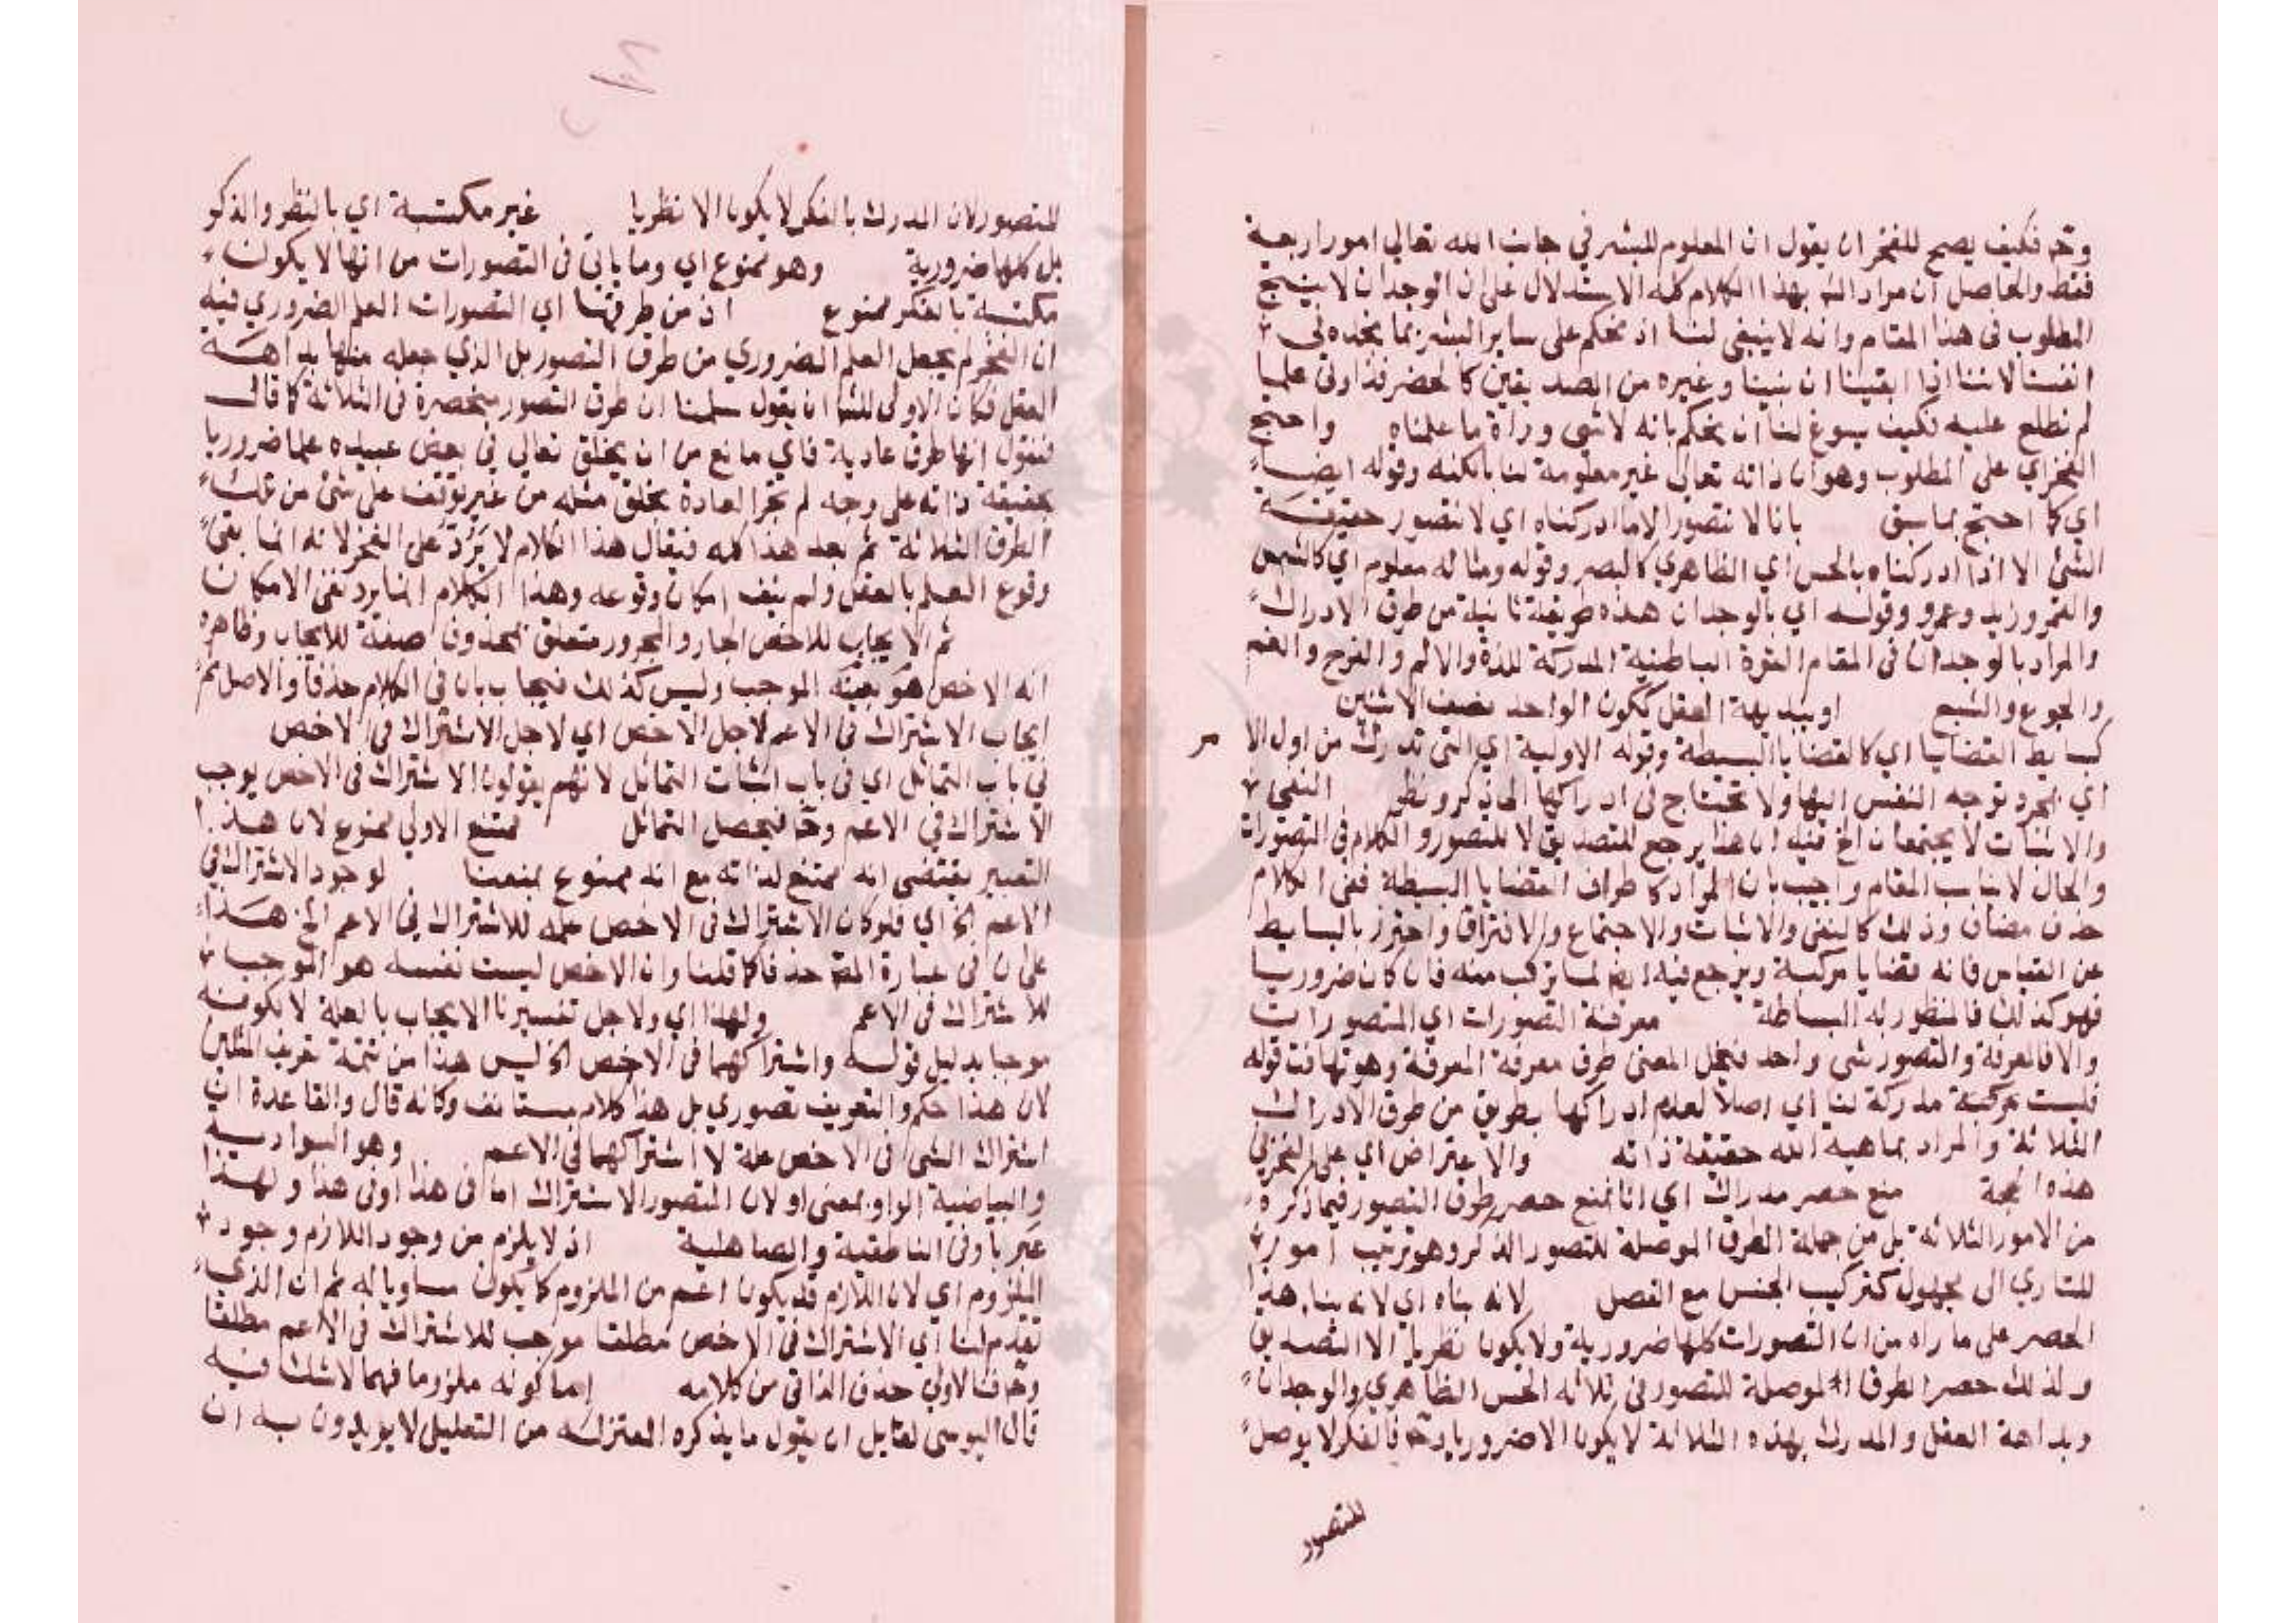 وح فكيف يصح للفخر ان يقول ان المعلوم للبشر في جانب الله تعالي امور اربعة
فقط والحاصل ان مراد الش بهذا الكلام كله الاستدلال على ان الوجدان لا ينتج
المطلوب فى هذا المقام وانه لا ينبغي لنا ان نحكم على ساير البشر بما نجده في
انفسنا لاننا اذا ايقينا ان نبينا وغيره من الصديقين كالخضر قد اوتى علما
لم نطلع عليه فكيف يسوغ لنا ان نحكم بانه لا شي وراء ما علمناه واحتج
الفخر اي على المطلوب وهو ان ذاته تعالي غير معلومة لنا بالكنه وقوله ايضا
اي كما احتج بما سبق بانا لا نتصور الا ما ادركناه اي لا نتصور حقيقة
الشئ الا اذا ادركناه بالحس اي الظاهري كالبصر وقوله ومثاله معلوم اي كالشمس
والقمر وزيد وعمرو وقوله اي بالوجدان هذه طريقة ثانية من طرق الادراك
والمراد بالوجدان فى المقام القوة الباطنية المدركة للذة والالم والفرح والغم
والجوع والشبع او ببديهة العقل ككون الواحد نصف الاثنين
كبسايط القضايا اي كالقضايا البسيطة وقوله الاولية اي التى تدرك من اول الامر
اي بمجرد توجه النفس اليها ولا تحتاج فى ادراكها الى ذكر ونظر النفى
والاثبات لا يجتمعان الخ فيه ان هذا يرجع للتصديق لا للتصور والكلام فى التصورات
والحال لا يناسب المقام واجيب بان المراد كاطراف القضايا البسيطة ففى الكلام
حذف مضاف وذلك كالنفى والاثبات والاجتماع والافتراق واحترز بالبسايط
عن القياس فانه قضايا مركبة ويرجع فيه ايض لما تركب منه فان كان ضروريا
فهو كذلك فالمنظور له البساطة معرفة التصورات اي المتصورات
والا فالمعرفة والتصور شى واحد فينحل المعنى طرق معرفة المعرفة وهو تهافت قوله
فليست مدركة لنا اي اصلا لعدم ادراكها بطريق من طرق الادراك
الثلاثة والمراد بماهية الله حقيقة ذاته والاعتراض اي على الفخر في
هذه الحجة منع حصر مدراك اي انا نمنع حصر طرق التصور فيما ذكره
من الامور الثلاثة بل من جملة الطرق الموصلة للتصور الفكر وهو ترتيب امور
للتاري الى مجهول كتركيب الجنس مع الفصل لانه بناه اي لانه بنا هذا
الحصر على ما راه من ان التصورات كلها ضرورية ولا يكون نظريا الا التصديق
ولذلك حصر الطرق الموصلة للتصور فى ثلاثه الحس الظاهري والوجدان
وبداهة العقل والمدرك بهذه الثلاثة لا يكون الا ضروريا وح فالفكر لا يوصل
للتصور
للتصور لان المدرك بالفكر لا يكون الا نظريا غير مكتسبة اي بالنظر والفكر
بل كلها ضرورية وهو ممنوع اي وما ياتي فى التصورات من انها لا يكون
مكتسبة بالفكر ممنوع ان من طرقها اي التصورات العلم الضروري فيه
ان الفخر لم يجعل العلم الضروري من طرق التصور بل الذي جعله منها بداهة
العقل فكان الاولى للش ان يقول سلمنا ان طرق التصور منحصرة فى الثلاثة كما قال
فنقول انها طرق عادية فاي مانع من ان يخلق تعالي في بعض عبيده علما ضروريا
بحقيقة ذاته على وجه لم تجر العادة بخلق مثله من غير توقف على شئ من تلك
الطرق الثلاثة ثم بعد هذا كله فيقال هذا الكلام لا يرد على الفخر لانه انما نفى
وقوع العلم بالعقل ولم ينف امكان وقوعه وهذا الكلام انما يرد نفى الامكان
ثم الايجاب للاخص الجار والمجرور متعلق بمحذوف صفة للايجاب وظاهره
انه الاخص هو بعينه الموجب وليس كذلك فيجاب بان فى الكلام حذفا والاصل ثم
ايجاب الاشتراك فى الاعم لاجل الاخص اي لاجل الاشتراك فى الاخص
في باب التماثل اي فى باب اثبات التماثل لانهم يقولون الاشتراك فى الاخص يوجب
الاشتراك في الاعم وح فيحصل التماثل ممتنع الاولى ممنوع لان هذا
التعبير يقتضى انه ممتنع لذاته مع انه ممنوع بمنعنا لوجود الاشتراك فى
الاعم الخ اي فلو كان الاشتراك فى الاخص علة للاشتراك فى الاعم الخ هذا
على ان فى عبارة المص حذفا كما قلنا وان الاخص ليست نفسه هو الموجب
للاشتراك فى الاعم ولهذا اي ولاجل تفسيرنا الايجاب بالعلة لا بكونه
موجبا بدليل قوله واشتراكهما فى الاخص الخ ليس هذا من تتمة تعريف المثلين
لان هذا حكم والتعريف تصوري بل هذا كلام مستانف وكانه قال والقاعدة ان
اشتراك الشى فى الاخص علة لاشتراكهما فى الاعم وهو السوادية
والبياضية الواو بمعنى او لان المتصور الاشتراك اما فى هذا او فى هذا ولهذا
عبر باو فى الناطقية والصاهلية اذ لا يلزم من وجود اللازم وجود
الملزوم اي لان اللازم قد يكون اعم من الملزوم كما يكون مساويا له ثم ان الذي
تقدم لنا اي الاشتراك فى الاخص مطلقا موجب للاشتراك فى الاعم مطلقا
وح فالاولى حذف الذاتى من كلامه اما كونه ملزوما فهما لا شك فيه
قال اليوسى لقايل ان يقول ما يذكره المعتزله من التعليل لا يريدون به ان